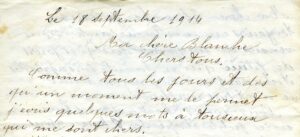 Le 18 septembre 1914
Ma chère Blanche
Chers tous.
Comme tous les jours et dès
qu'un moment me le permet
j'écris quelques mots à tous ceux
qui me sont chers.